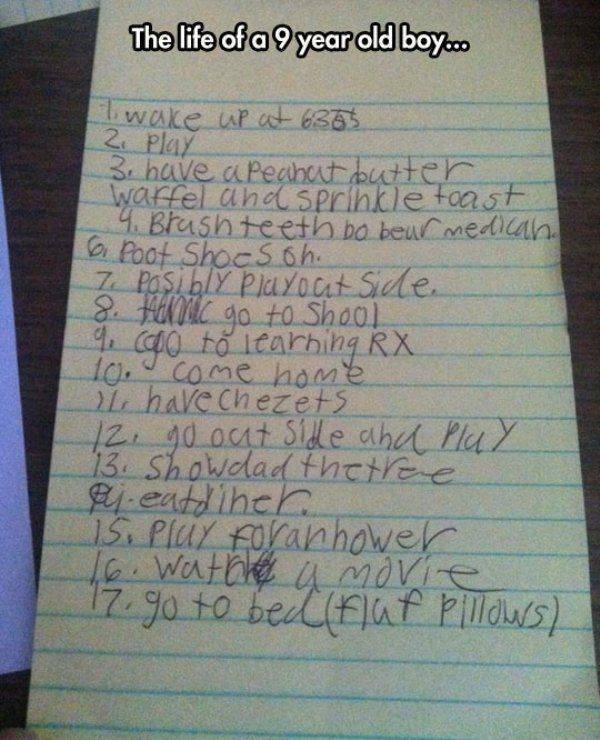 The life of a 9 year old boy...
1. wake up at 635
2. Play
3. have a peanut butter
waffel and sprinkle toast
4. Brush teeth bo beur medican.
6. Poot Shoes on.
7. Posibly Play out Side.
8. go to Shool
9. go to learning RX
10. come home
11. have chezets
12. go out Side and Play
13. Show dad the tree
eat diner.
15. Play for an hower
16. Watch a movie
17. go to bed (fluf Pillows)